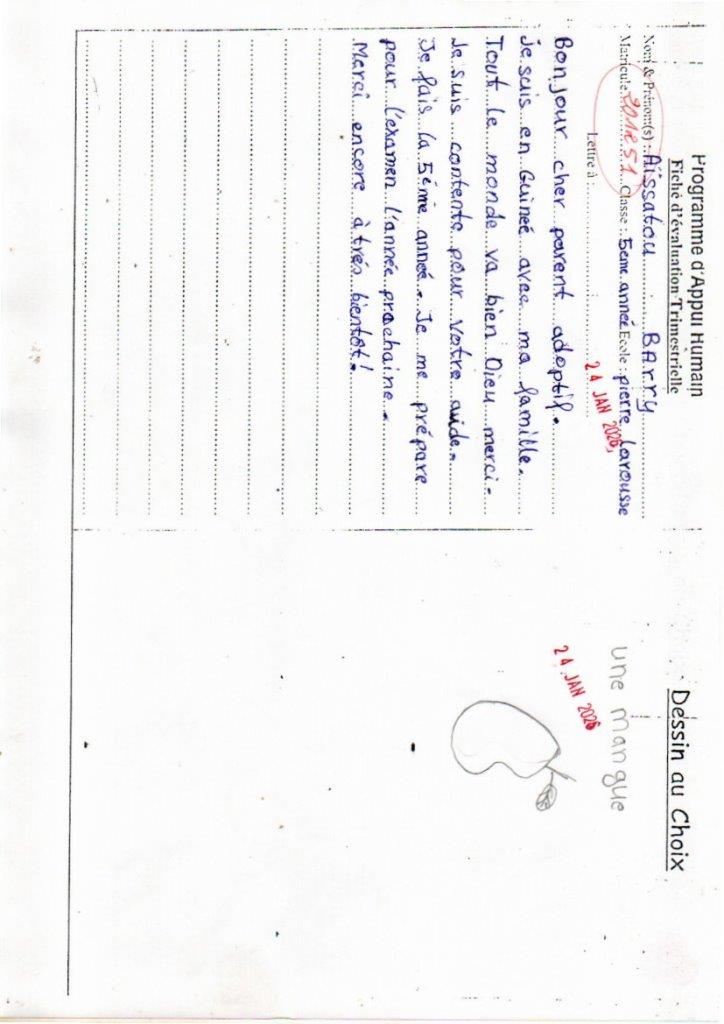 Programme d'Appui Humain
Fiche d'évaluation Trimestrielle
Nom & Prénom(s) : Aïssatou BArry
Matricule 201251 Classe : 5ème année Ecole : pierre larousse
Lettre à :
24 JAN 2026
Bonjour cher parent adoptif.
Je suis en Guineé avec ma famille.
Tout le monde va bien Dieu merci.
Je suis contente pour votre aide.
Je fais la 5éme année. Je me prépare
pour l'examen l'année prochaine.
Merci encore à très bientôt!
Dessin au Choix
une mangue
24 JAN 2026